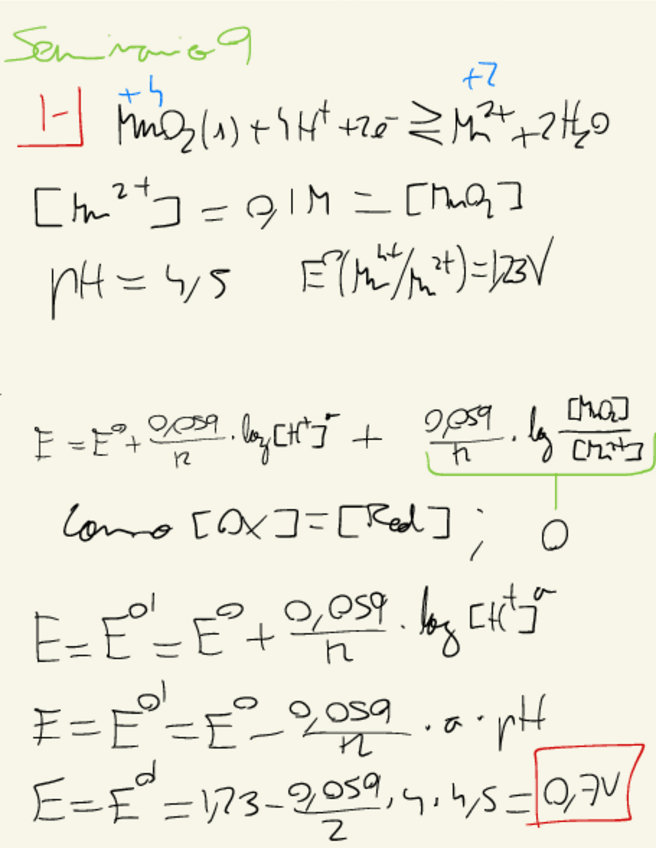 Seminario 9
+4 +2
1- MnO₂(s) + 4H⁺ + 2e⁻ ⇄ Mn²⁺ + 2H₂O
[Mn²⁺] = 0,1M = [MnO₂]
pH = 4,5 E⁰(Mn⁴⁺/Mn²⁺) = 1,23V
E = E⁰ + 0,059/n · log[H⁺]ᵃ + 0,059/n · log [MnO₂]/[Mn²⁺]
Como [Ox] = [Red] ; 0
E = E⁰' = E⁰ + 0,059/n · log [H⁺]ᵃ
E = E⁰' = E⁰ - 0,059/n · a · pH
E = E⁰' = 1,23 - 0,059/2 · 4 · 4,5 = 0,7V